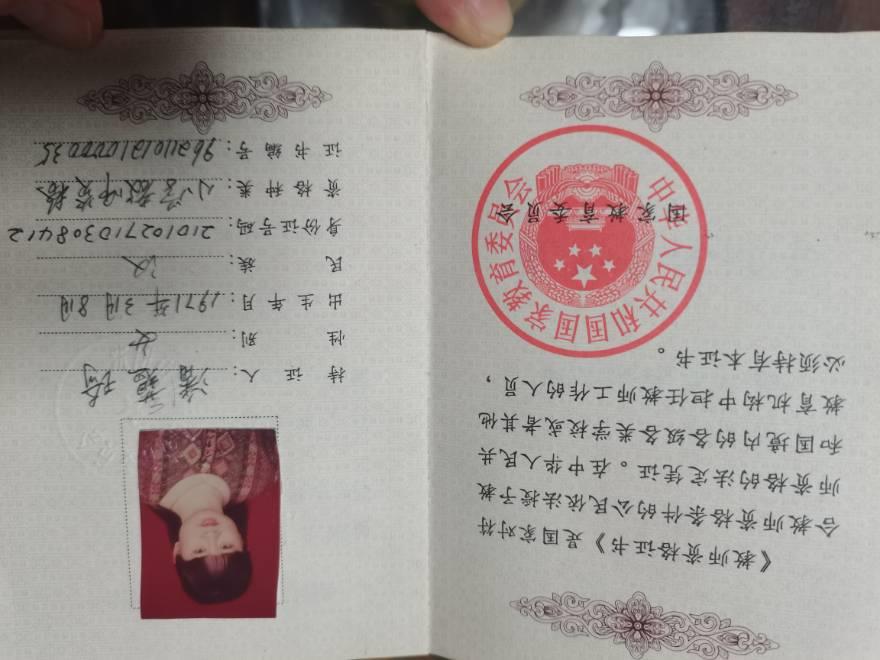 《教师资格证书》是国家对符
合教师资格条件的公民依法授予教
师资格的法定凭证。在中华人民共
和国境内的各级各类学校或者其他
教育机构中担任教师工作的人员，
必须持有本证书。
中华人民共和国国家教育委员会
国家教育委员会
持证人：潘
性别：女
出生年月：1971年3月8日
民族：汉
身份证号码：210102710308412
资格种类：小学教师资格
证书编号：